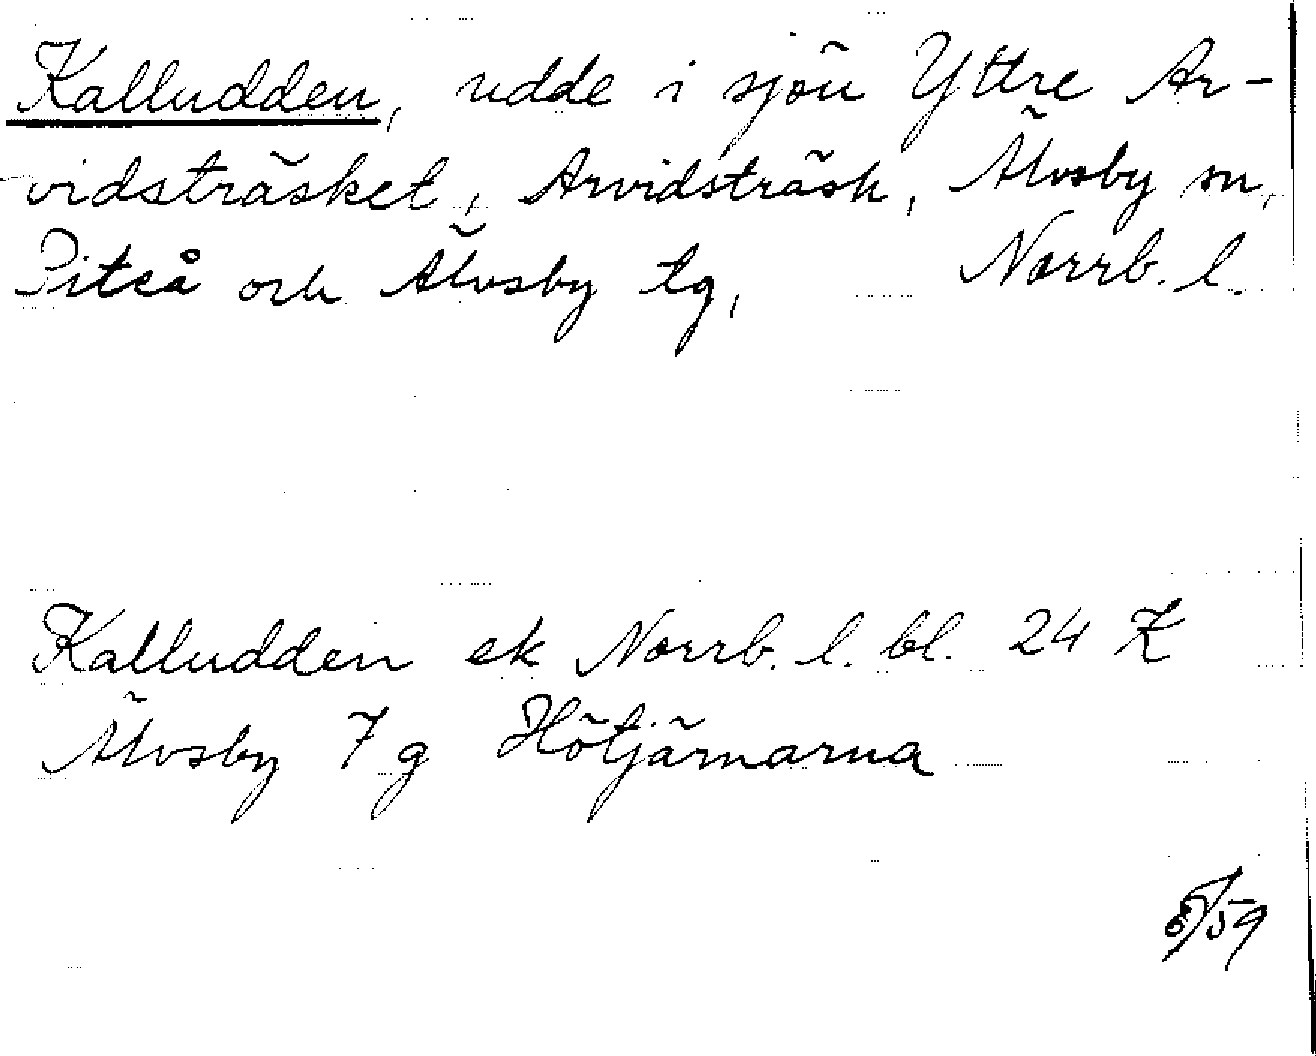 Kalludden, udde i sjön Yttre Ar-
vidsträsket, Arvidsträsk, Älvsby sn,
Piteå och Älvsby tg, Norrb. l.
Kalludden ek Norrb. l. bl. 24 K
Älvsby 7 g Hötjärnarna
/59